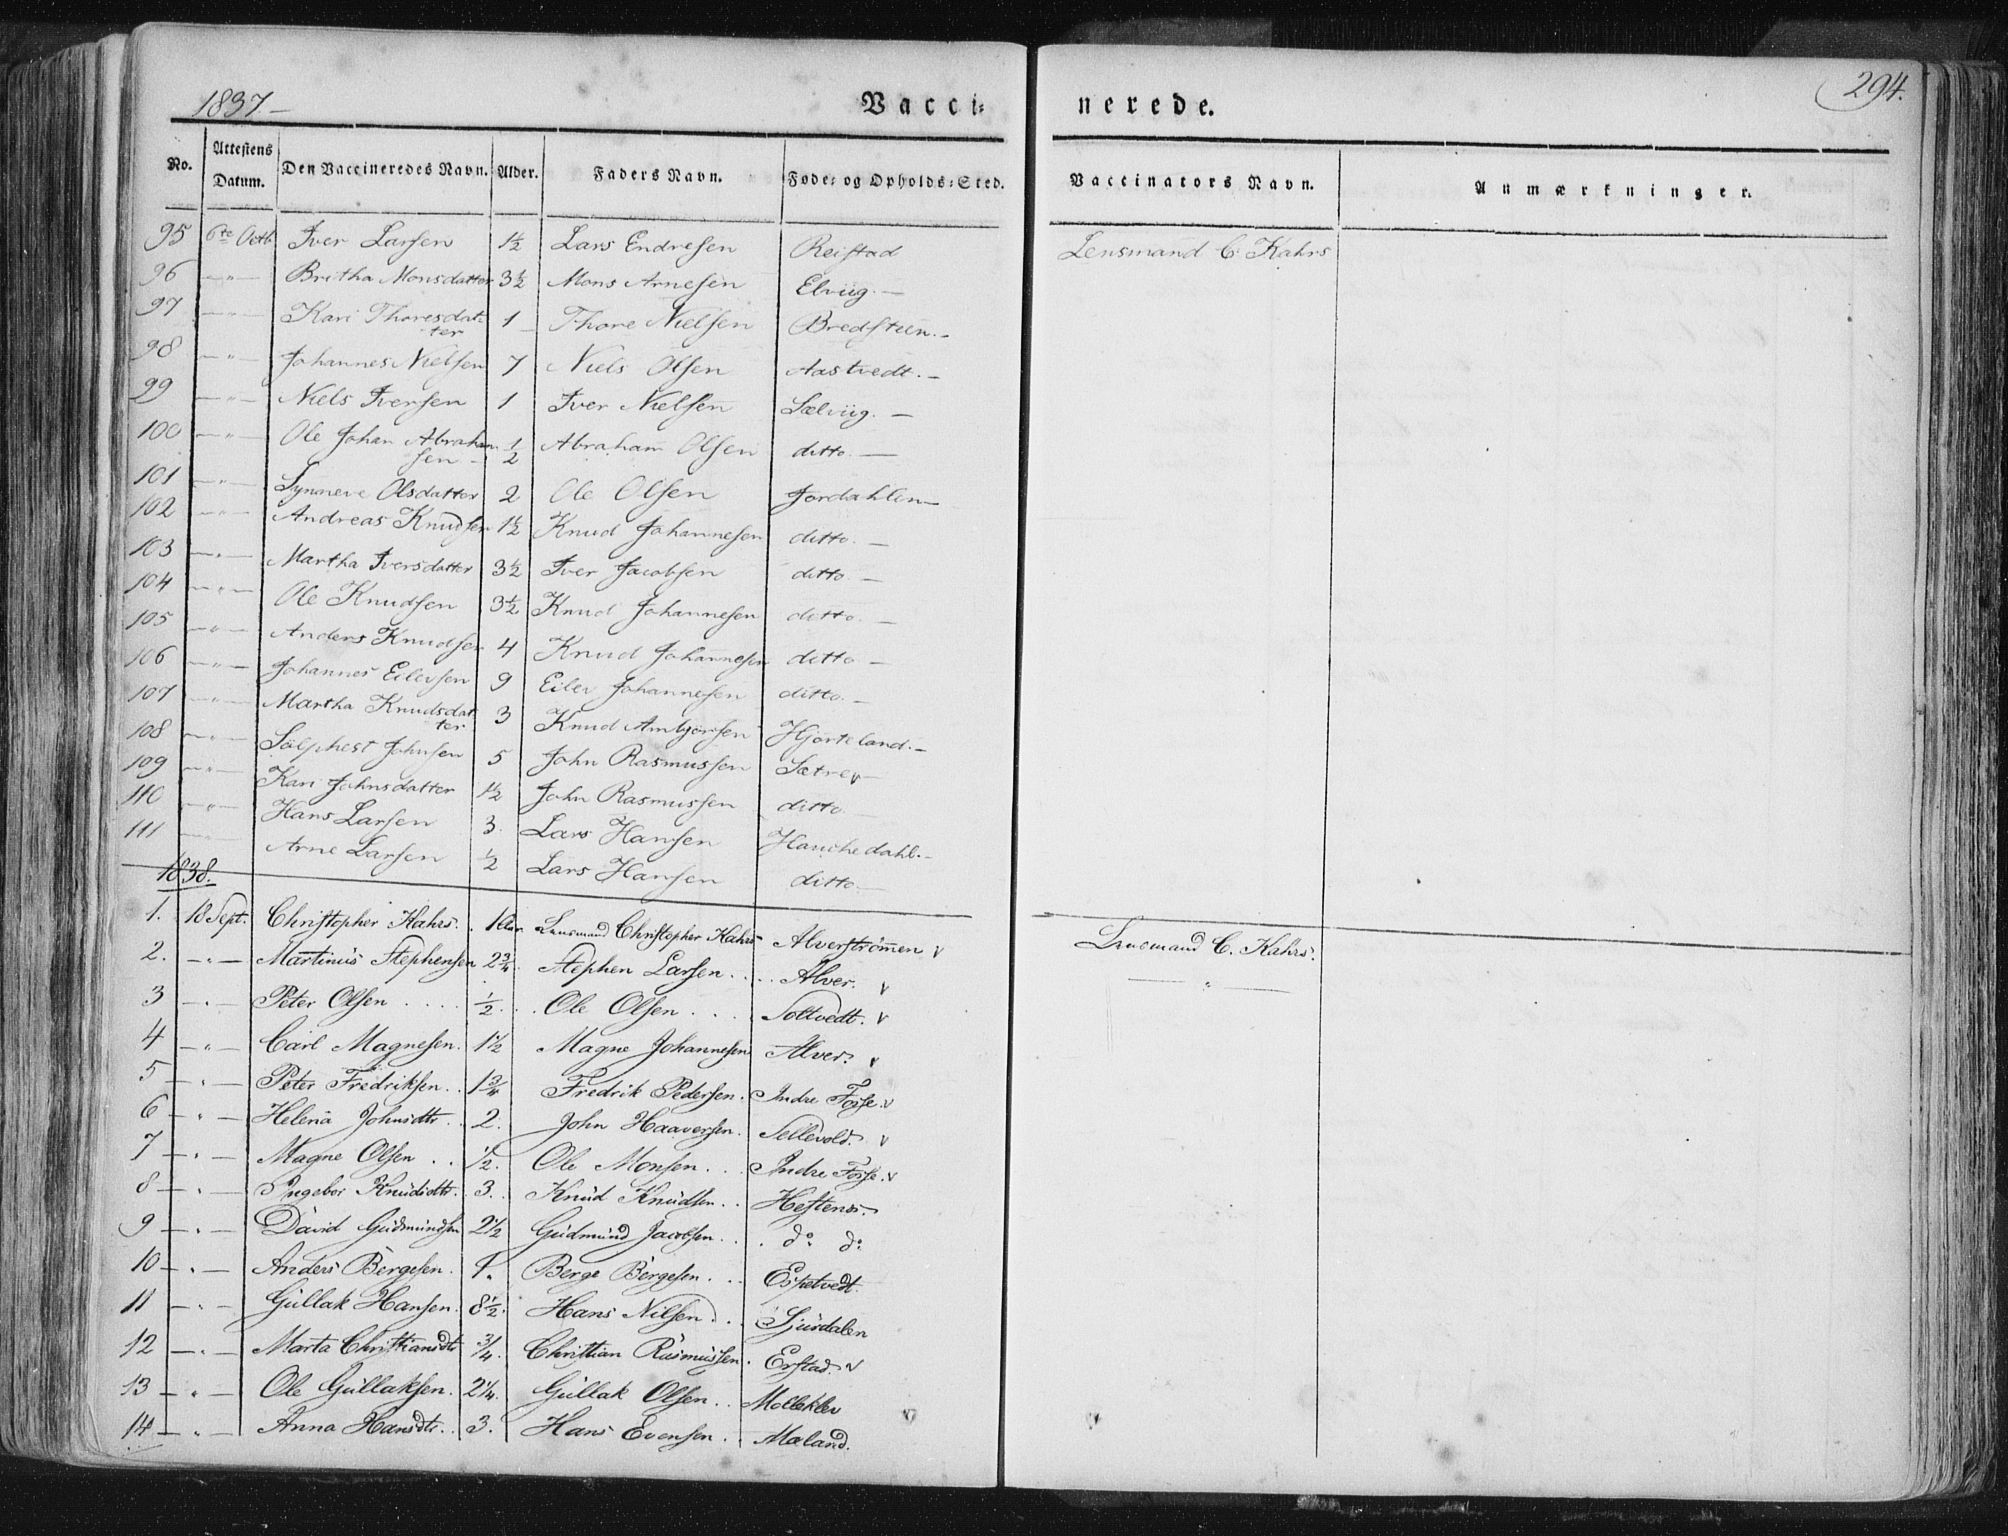 1837- Vacci= nerede. 294.
No. Attestens Datum. Den Vaccineredes Navn. Alder. Faders Navn. Føde= og Opholds=Sted. Vaccinators Navn. Anmærkninger.
95 6te Octb. Iver Larsen 1½ Lars Endresen Reistad Lensmand C. Kahrs
96 —"— Britha Monsdatter 3½ Mons Arnesen Elviig.—
97 —"— Kari Thoresdat-
ter 1 Thore Nielsen Bredstuen.—
98 —"— Johannes Nielsen 7 Niels Olsen Aastvedt.—
99 —"— Niels Iversen 1 Iver Nielsen Sælviig.—
100 —"— Ole Johan Abraham
sen— ½ Abraham Olsen ditto.—
101 —"— Synneve Olsdatter 2 Ole Olsen Jordahlen—
102 —"— Andreas Knudsen 1½ Knud Johannesen ditto.—
103 —"— Martha Iversdatter 3½ Iver Jacobsen ditto.—
104 —"— Ole Knudsen 3½ Knud Johannesen ditto.—
105 —"— Anders Knudsen 4 Knud Johannesen ditto—
106 —"— Johannes Eilersen 9 Eiler Johannesen ditto.—
107 —"— Martha Knudsdat
ter 3 Knud Ambjørsen Hjorteland.—
108 —"— Sølphest Johnsen 5 John Rasmussen Sætre v—
109 —"— Kari Johnsdatter 1½ John Rasmussen ditto—
110 —"— Hans Larsen 3. Lars Hansen Hauchedahl.—
111 —"— Arne Larsen ½ Lars Hansen ditto.—
1838.
1. 18 Sept. Christopher Kahrs. 1 Aar. Lensmand Christopher Kahrs Alverstrømmen v Lensmand C. Kahrs.
2. —"— Martinus Stephensen 2¾. Stephen Larsen... Alver. v —"—
3 —"— Peter Olsen.... ½.. Ole Olsen.... Soltvedt. v
4 —"— Carl Magnesen. 1½ Magne Johannesen Alver. v
5 —"— Peter Fredriksen.. 1¾ Fredrik Pedersen. Indre Fosse. v
6 —"— Helena Johnsdtr.. 2. John Haaversen. Sellevold. v
7 —"— Magne Olsen.. ½. Ole Monsen... Indre Fosse. v
8 —"— Ingebor Knudsdtr. 3. Knud Knudsen.. Heftenes.
9 —"— David Gudmundsen 2½ Gudmund Jacobsen.. do do
10 —"— Anders Bergesen. 1. Berge Bergesen... Espetvedt.
11 —"— Gullak Hansen. 8½. Hans Nilsen... Sjurdalen
12 —"— Marta Christiansdtr ¾. Christian Rasmussen. Erstad. v
13 —"— Ole Gullaksen. 2¼. Gullak Olsen.. Molleklev
14 —"— Anna Hansdtr.. 3. Hans Evensen.. Mæland.